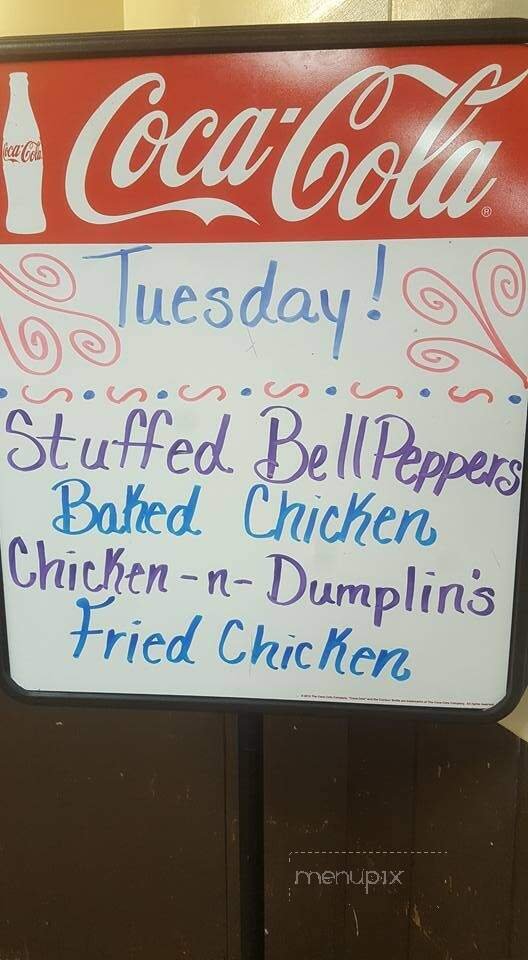 Coca-Cola
Coca-Cola ®
Tuesday!
Stuffed Bell Peppers
Baked Chicken
Chicken-n-Dumplin's
Fried Chicken
menupix